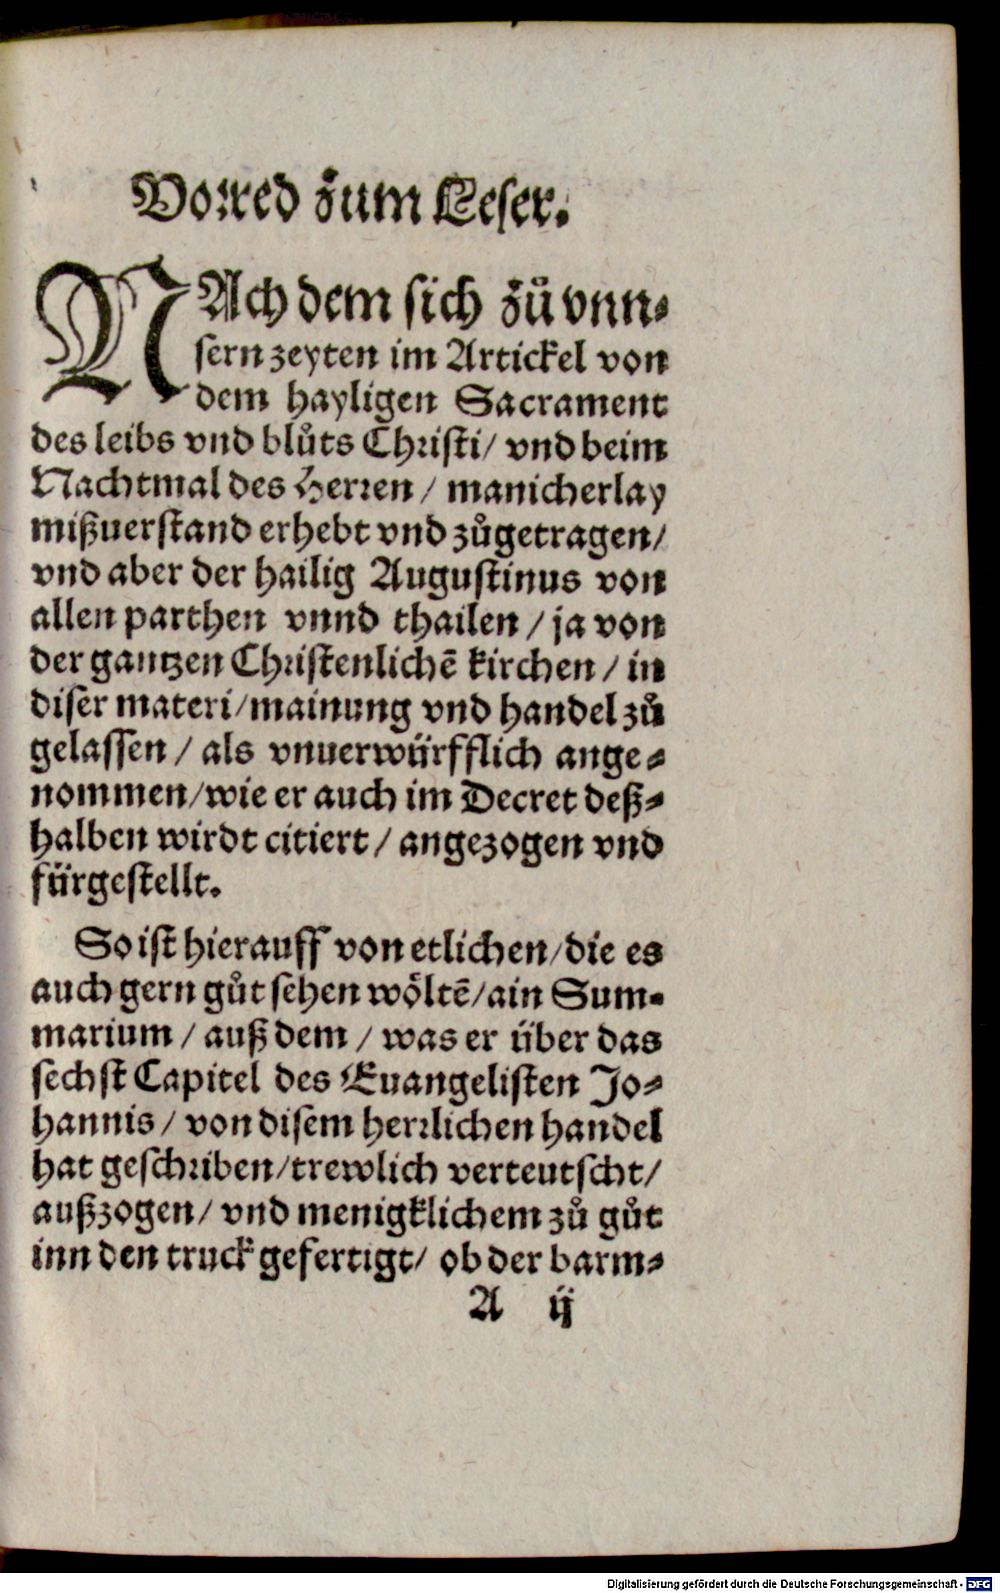 Vorred zum Leser.
NAch dem sich zuͦ vnn-
sern zeyten im Artickel von
dem hayligen Sacrament
des leibs vnd bluͦts Christi/ vnd beim
Nachtmal des Herren / manicherlay
mißuerstand erhebt vnd zuͦgetragen/
vnd aber der hailig Augustinus von
allen parthen vnnd thailen / ja von
der gantzen Christenlichẽ kirchen / in
diser materi/mainung vnd handel zuͦ
gelassen / als vnuerwürfflich ange-
nommen/wie er auch im Decret deß-
halben wirdt citiert / angezogen vnd
fürgestellt.
So ist hierauff von etlichen/die es
auch gern guͦt sehen woͤltẽ/ain Sum-
marium / auß dem / was er über das
sechst Capitel des Euangelisten Jo-
hannis / von disem herrlichen handel
hat geschriben/trewlich verteutscht/
außzogen/ vnd menigklichem zuͦ guͦt
inn den truck gefertigt/ ob der barm-
A ij
Digitalisierung gefördert durch die Deutsche Forschungsgemeinschaft - DFG